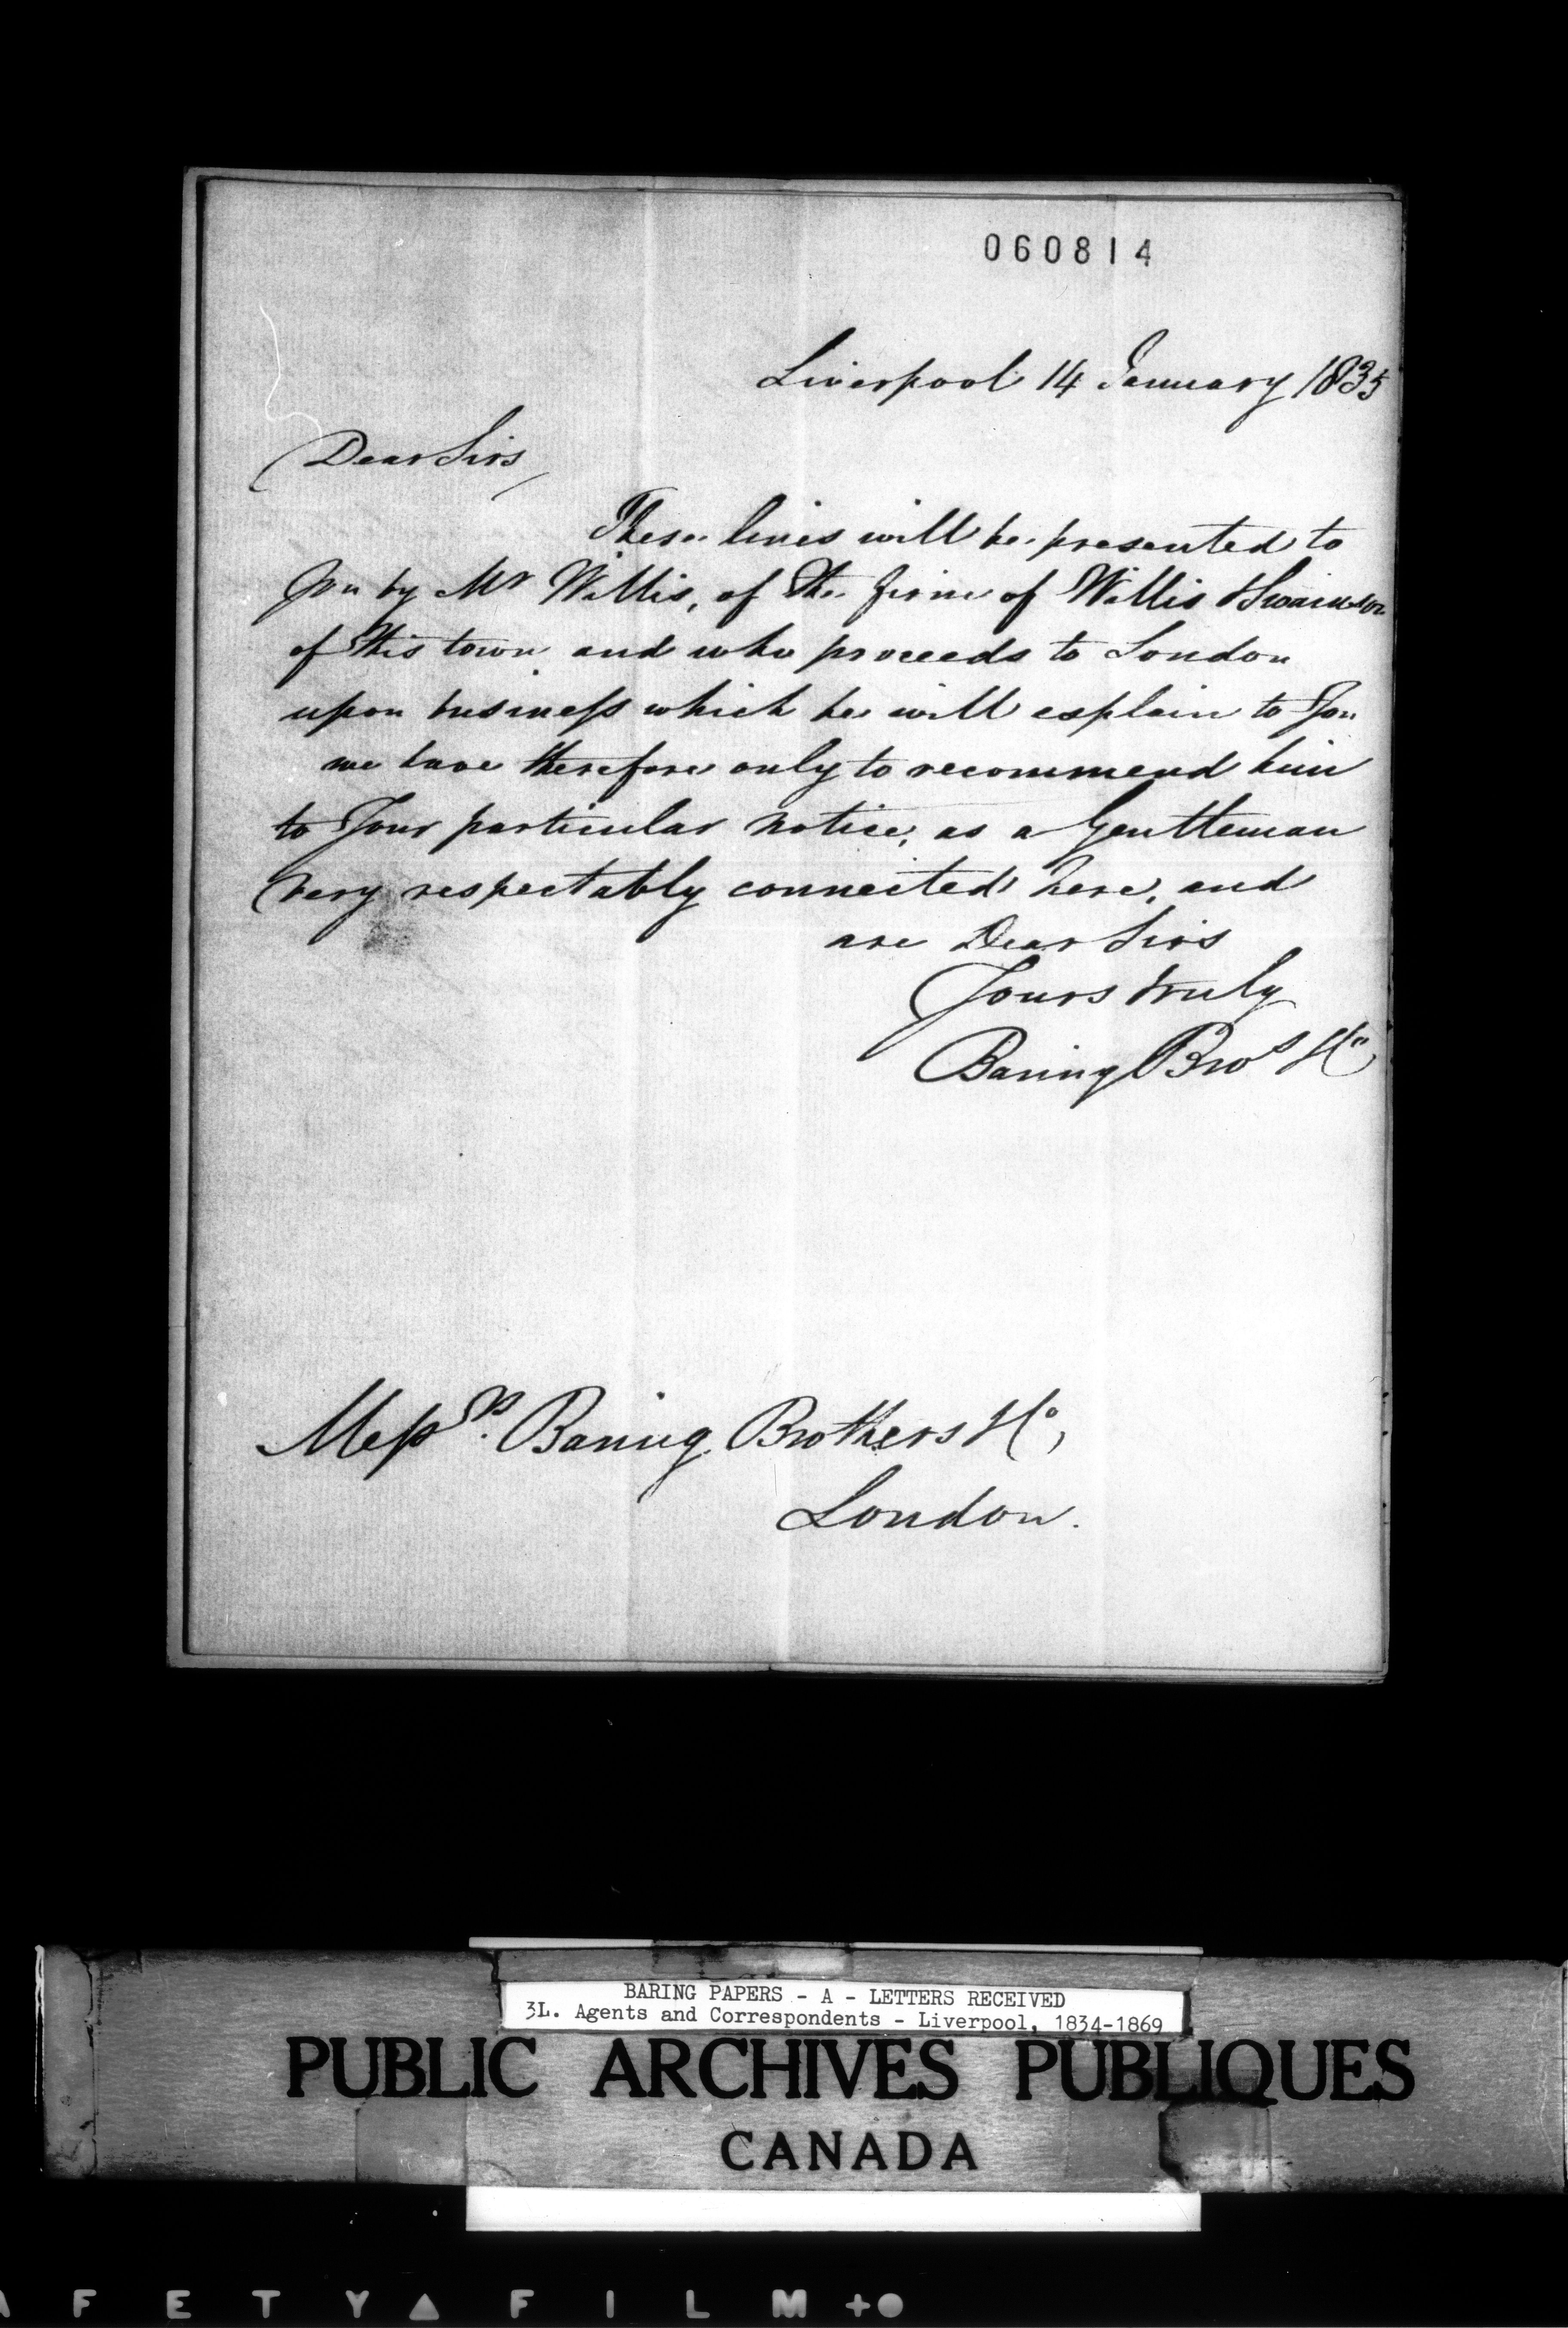 060814
Liverpool 14 January 1835
Dear Sirs,
These lines will be presented to
You by Mr Willis, of the firm of Willis & Swainson
of this town and who proceeds to London
upon business which he will explain to You
we have therefore only to recommend him
to Your particular notice, as a Gentleman
very respectably connected here, and
are Dear Sirs
Yours truly
Baring Bros & Co
Messrs. Baring Brothers & Co,
London.
BARING PAPERS - A - LETTERS RECEIVED
3L. Agents and Correspondents - Liverpool, 1834-1869
PUBLIC ARCHIVES PUBLIQUES
CANADA
A F E T Y ▲ F I L M +●